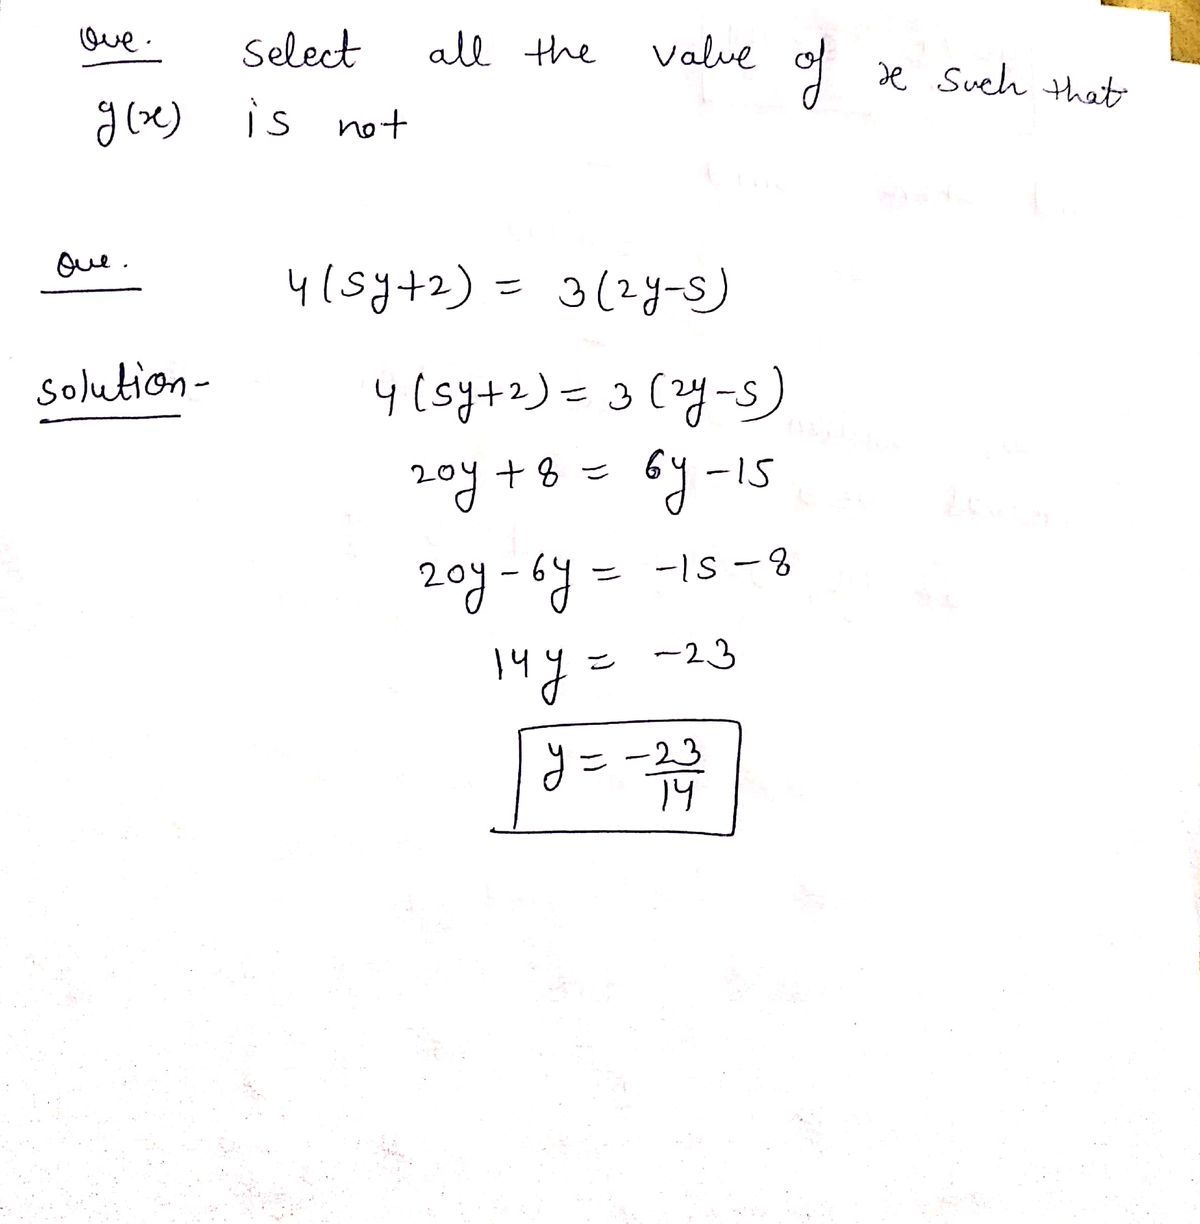 Que. select all the value of x such that
g(x) is not
Que. 4(5y+2) = 3(2y-5)
solution- 4(5y+2) = 3(2y-5)
20y + 8 = 6y - 15
20y - 6y = -15 - 8
14y = -23
y = -23/14